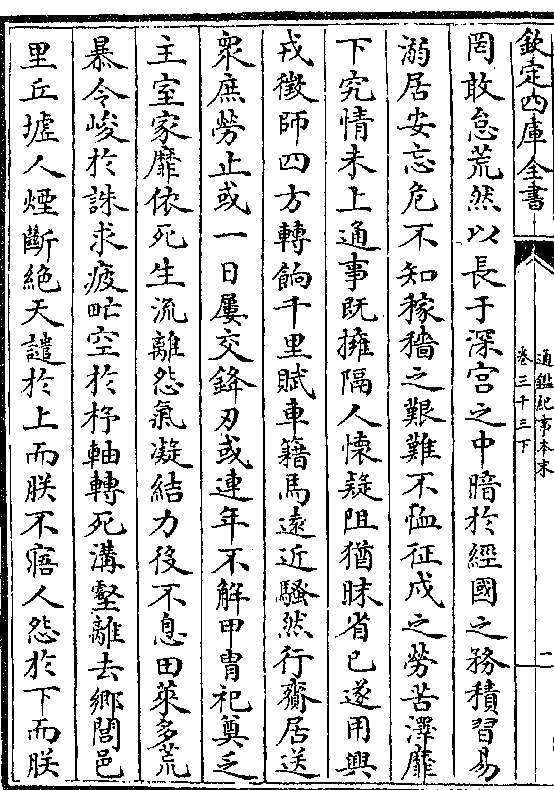 欽定四庫全書
通鑑紀事本末
卷三十三下
二
罔敢怠荒然以長于深宫之中暗於經國之務積習易
溺居安忘危不知稼穡之艱難不恤征戍之勞苦澤靡
下究情未上通事既擁隔人懷疑阻猶昧省已遂用興
戎徵師四方轉餉千里賦車籍馬遠近騷然行齎居送
衆庶勞止或一日屢交鋒刃或連年不解甲胄祀奠乏
主室家靡依死生流離怨氣凝結力役不息田萊多荒
暴令峻於誅求疲甿空於杼軸轉死溝壑離去鄉閭邑
里丘墟人煙斷絶天譴於上而朕不寤人怨於下而朕